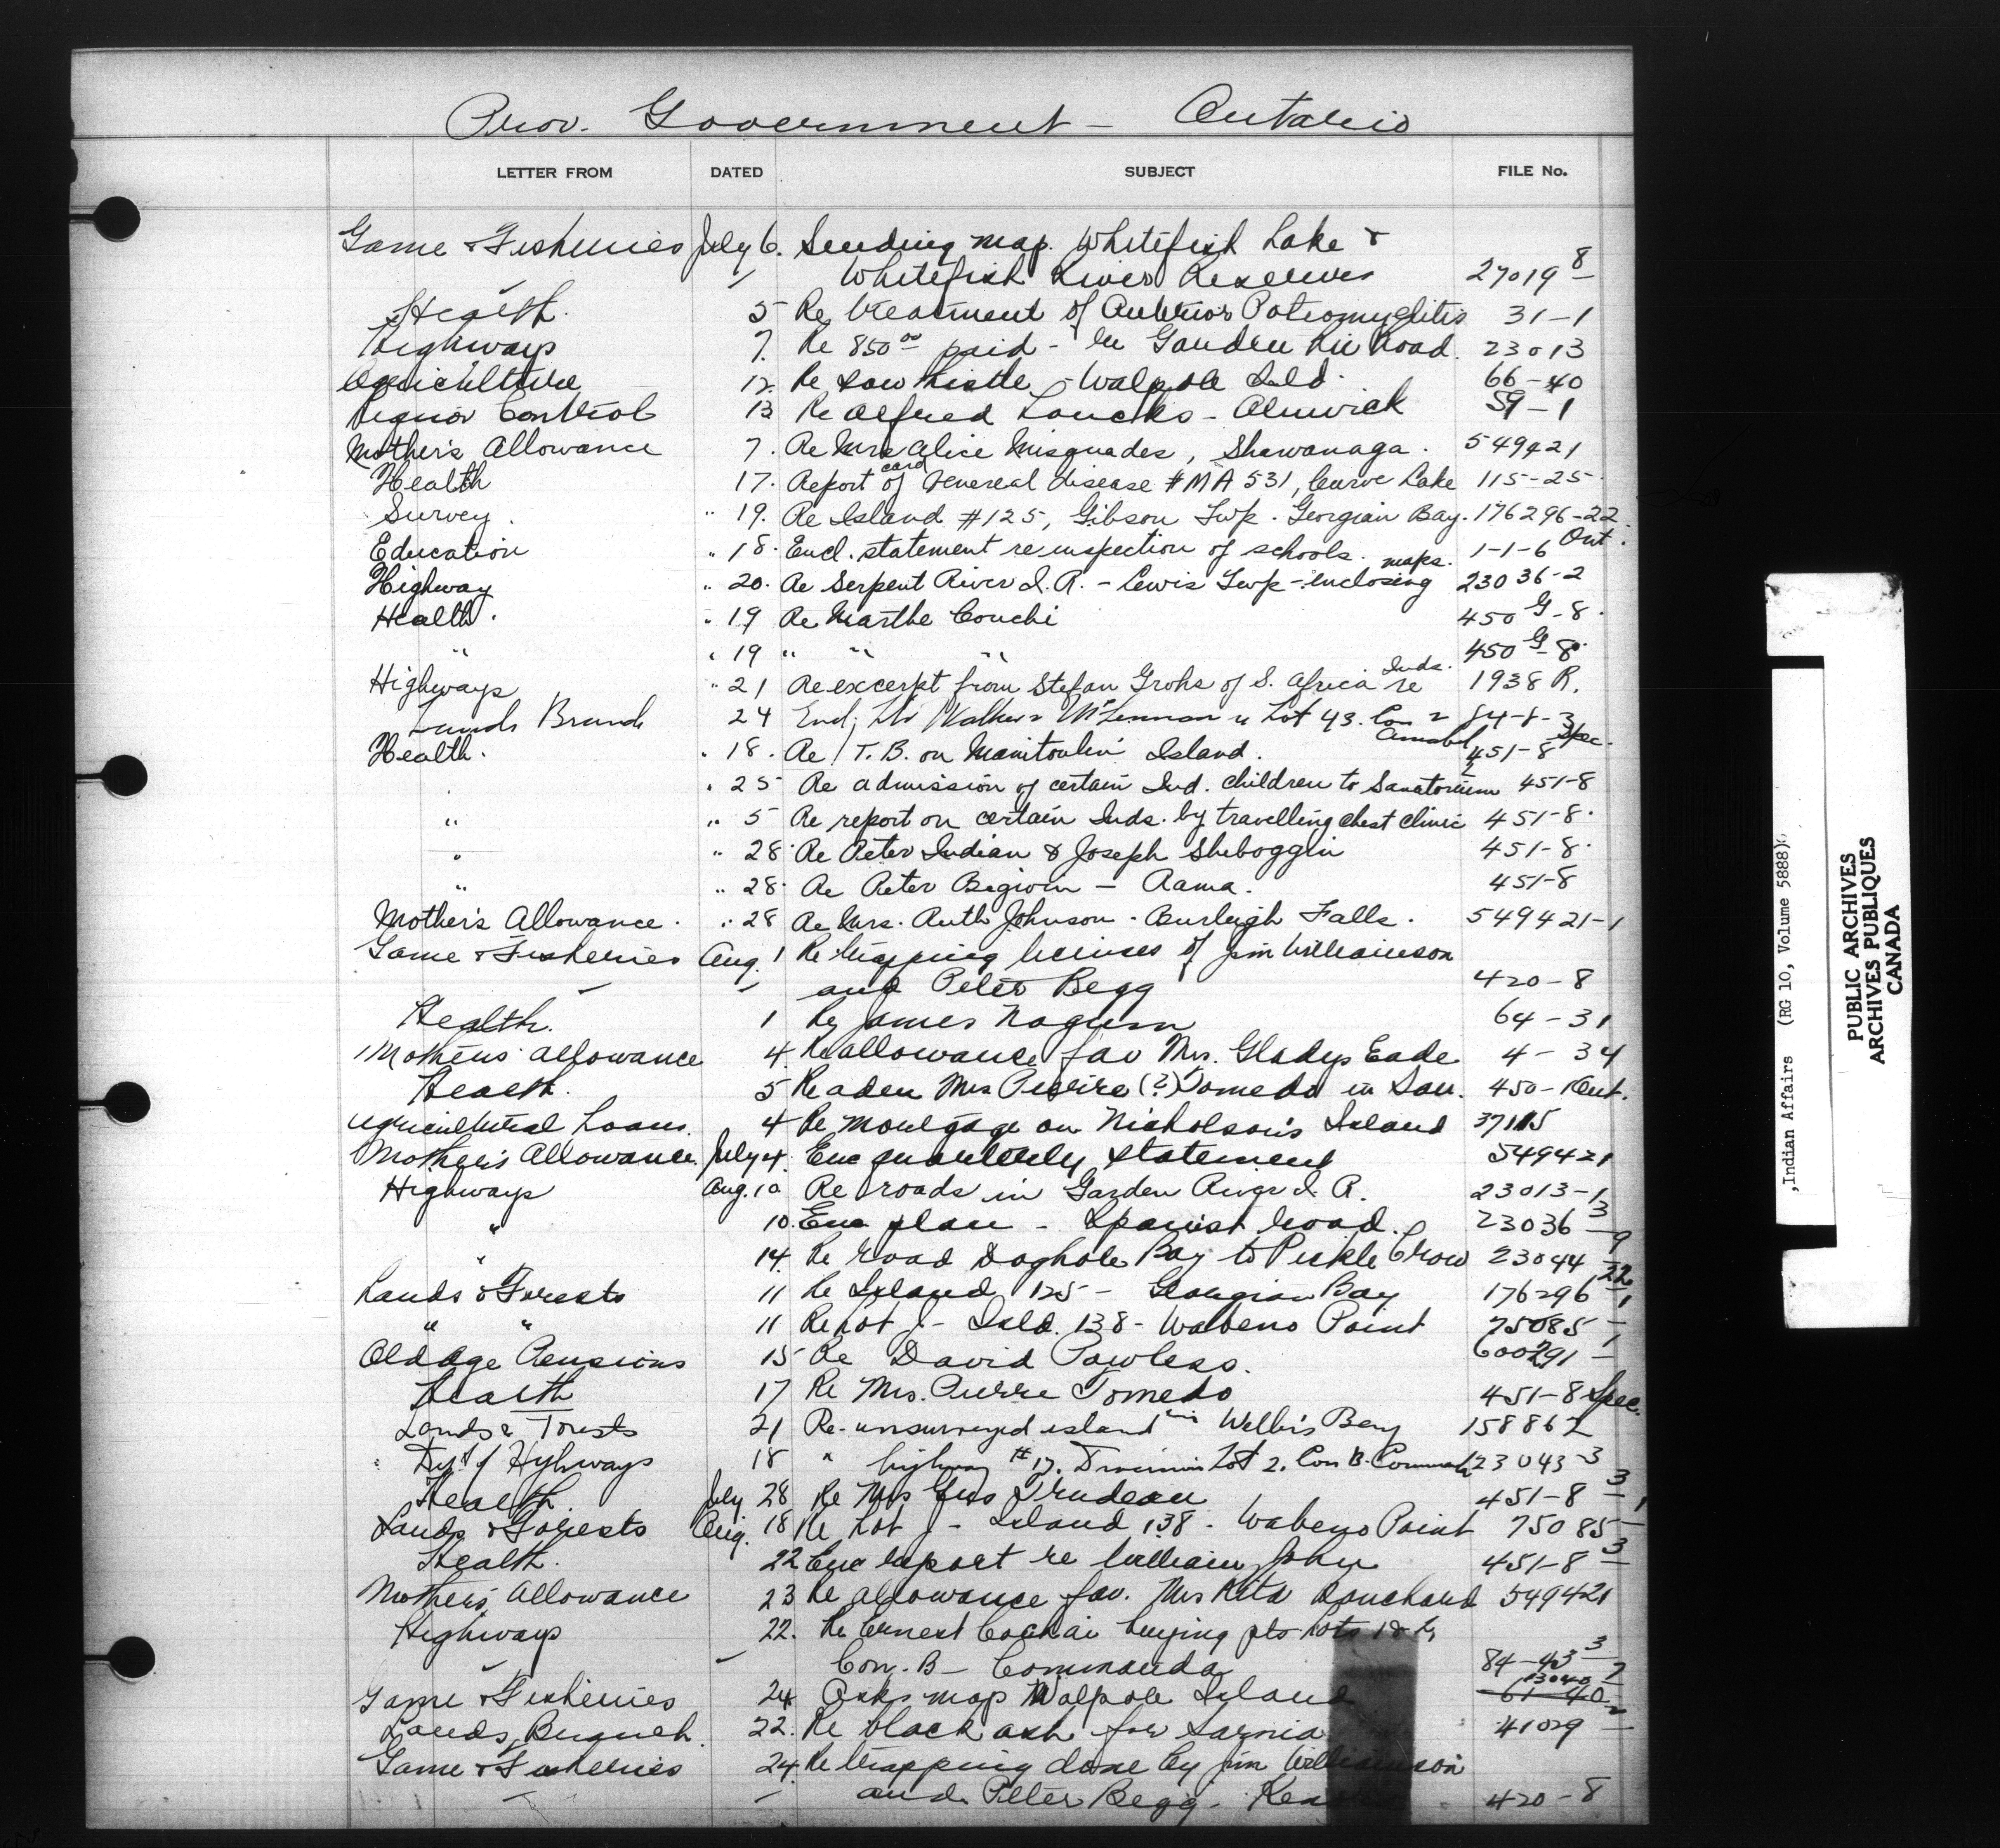 Prov. Government - Ontario
LETTER FROM DATED SUBJECT FILE No.
Game & Fisheries July 6. Sending map. Whitefish Lake &
Whitefish River Reserves 27019-8
Health. 5 Re treatment of Anterior Poliomyelitis 31-1
Highways 7. Re 850.00 paid - re Garden Riv Road. 23013
Agriculture 12. Re Sow thistle, Walpole Isld. 66-40
Liquor Control 13 Re Alfred Loucks - Alnwick 59-1
Mother's Allowance 7. Re Mrs Alice Misquades, Shawanaga. 549421
Health 17. Report card of Venereal disease #MA 531, Curve Lake 115-25
Survey. " 19. Re Island #125, Gibson Twp. Georgian Bay. 176296-22
Education " 18. Encl. statement re inspection of schools. 1-1-6 Ont.
Highway " 20. Re Serpent River I.R. - Lewis Twp - enclosing maps. 23036-2
Health. " 19 Re Marthe Couchi 450 G-8.
" " 19 " " " 450 G-8.
Highways " 21 Re excerpt from Stefan Grohs of S. Africa re Inds. 1938 R.
Lands Branch 24 Encl. Walker McLennan Lot 43. Con 2 Amabel 84-8-3
Health. " 18. Re T.B. on Manitoulin Island. 451-8 Spec.
" 25 Re admission of certain Ind. children to Sanatorium 451-8
" " 5 Re report on certain Inds. by travelling chest clinic 451-8.
" " 28. Re Peter Indian & Joseph Sheboggin 451-8.
" " 28. Re Peter Bigwin - Rama. 451-8
Mother's Allowance. " 28 Re Mrs. Ruth Johnson. Burleigh Falls. 549421-1
Game & Fisheries Aug. 1 Re trapping licenses of Jim Williamson
and Peter Begg 420-8
Health. 1 Re James 64-31
Mothers' Allowance 4. Re allowance fav Mrs. Gladys Eade 4-34
Health. 5 Re adm Mrs (?) Tomedo in San. 450-Kent.
Agricultural Loans. 4 Re mortgage on Nicholson's Island 37115
Mother's Allowance. July 4. Enc quarterly statement 549421
Highways Aug. 10 Re roads in Garden River I.R. 23013-1
" 10. Enc plan - Spanish Road. 23036-3
" 14. Re road Doghole Bay to Pickle Crow 23044-9
Lands & Forests 11 Re Island 125 - Georgian Bay 176296-22
" " 11 Re Lot J - Isld. 138 - Wabeno Point 75085-1
Old Age Pensions 15 Re David Powless. 600291-1
Health 17 Re Mrs. Pierre Tomedo 451-8 Spec.
Lands & Forests 21 Re-unsurveyed island in Wellers Bay 158862
Dept of Highways 18 " highway #17. Lot 2. Con B. Commanda 23043-3
Health. July 28 Re Mrs Gus Trudeau 451-8-3
Lands & Forests Aug. 18 Re Lot J - Island 138 - Wabeno Point 75085-1
Health. 22 Enc report re William John 451-8-3
Mothers' Allowance 23 Re allowance fav. Mrs Rita Ranchard 549421
Highways 22. Re Ernest Cochai buying pts Lots 1 &
Con. B - Commanda 84-43-3
Game & Fisheries 24 Asks map Walpole Island 13040-7 61-40
Lands Branch. 22. Re black ash for Sarnia 41029-2
Game & Fisheries 24. Re trapping done by Jim Williamson
and Peter Begg. 420-8
Indian Affairs (RG 10, Volume 5888)
PUBLIC ARCHIVES
ARCHIVES PUBLIQUES
CANADA